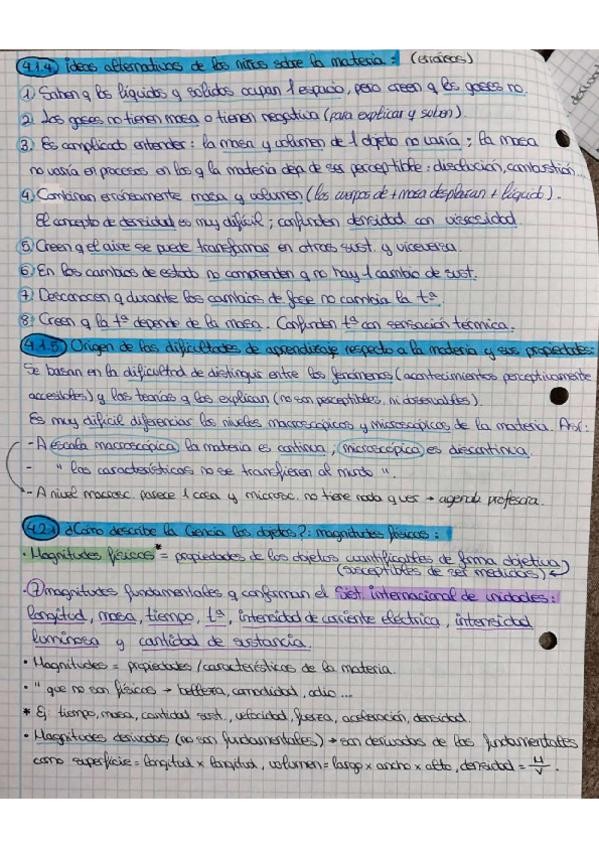 4.1.4. ideas alternativas de los niños sobre la materia: (erróneas)
① Saben q los líquidos y solidos ocupan 1 espacio, pero creen q los gases no.
② Los gases no tienen masa o tienen negativa (para explicar q suben).
③ Es complicado entender: la masa y volumen de 1 objeto no varía; la masa
no varía en procesos en los q la materia deja de ser perceptible: disolución, combustión...
④ Combinan erróneamente masa y volumen (los cuerpos de + masa desplazan + líquido).
El concepto de densidad es muy difícil; confunden densidad con viscosidad.
⑤ Creen q el aire se puede transformar en otras sust. y viceversa.
⑥ En los cambios de estado no comprenden q no hay 1 cambio de sust.
⑦ Desconocen q durante los cambios de fase no cambia la tª.
⑧ Creen q la tª depende de la masa. Confunden tª con sensación térmica.
4.1.5. Origen de las dificultades de aprendizaje respecto a la materia y sus propiedades:
Se basan en la dificultad de distinguir entre los fenómenos (acontecimientos perceptivamente
accesibles) y las teorías q los explican (no son perceptibles, ni observables).
Es muy difícil diferenciar los niveles macroscópicos y microscópicos de la materia. Así:
- A escala macroscópica la materia es continua, microscópica es discontinua.
- " las características no se transfieren al mundo ".
- A nivel macrosc. parece 1 cosa y microsc. no tiene nada q ver →
4.2.1 ¿Cómo describe la Ciencia los objetos?: magnitudes físicas:
· Magnitudes físicas* = propiedades de los objetos cuantificables de forma objetiva
(susceptibles de ser medidas)
· ⑦ magnitudes fundamentales q conforman el Sist. internacional de unidades:
longitud, masa, tiempo, tª, intensidad de corriente eléctrica, intensidad
luminosa y cantidad de sustancia.
· Magnitudes = propiedades / características de la materia.
· " que no son físicas → belleza, comodidad, odio...
* Ej: tiempo, masa, cantidad sust., velocidad, fuerza, aceleración, densidad.
· Magnitudes derivadas (no son fundamentales) → son derivadas de las fundamentales
como superficie = longitud x longitud, volumen = largo x ancho x alto, densidad = M/V.